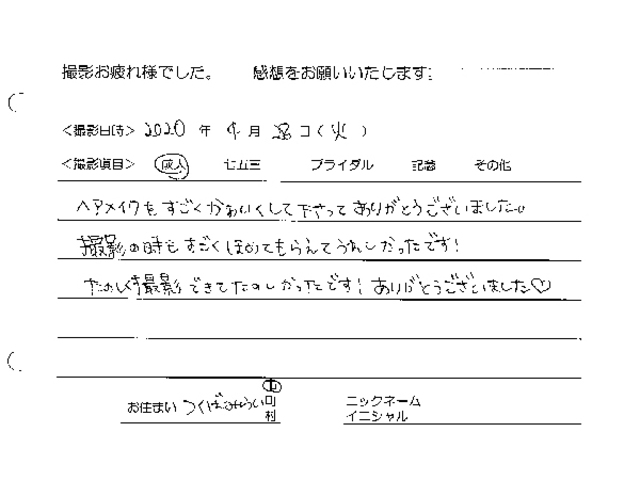 撮影お疲れ様でした。 感想をお願いいたします。
<撮影日時> 2020 年 4 月 28日(火)
<撮影項目> 成人 七五三 ブライダル 記念 その他
ヘアメイクもすごくかわいくして下さってありがとうございました
撮影の時もすごくほめてもらえてうれしかったです!
撮影できてたのしかったです!ありがとうございました♡
お住まい つくばみらい 市
町
村
ニックネーム
イニシャル